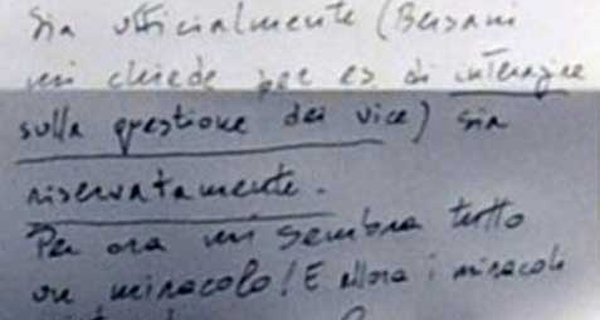 Sia ufficialmente (Bersani
mi chiede per es di interagire
sulla questione dei vice) sia
riservatamente.
Per ora mi sembra tutto
un miracolo! E allora i miracoli